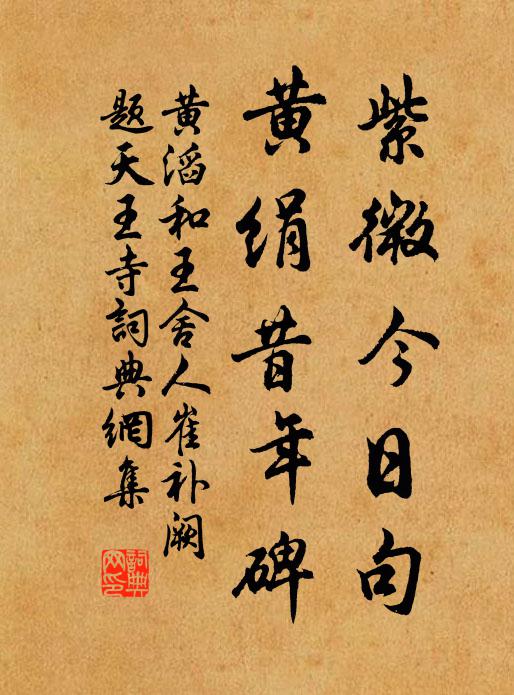 紫微今日句
黄絹昔年碑
黄滔和王舍人崔补阙
题天王寺詞典網集
詞典
网印